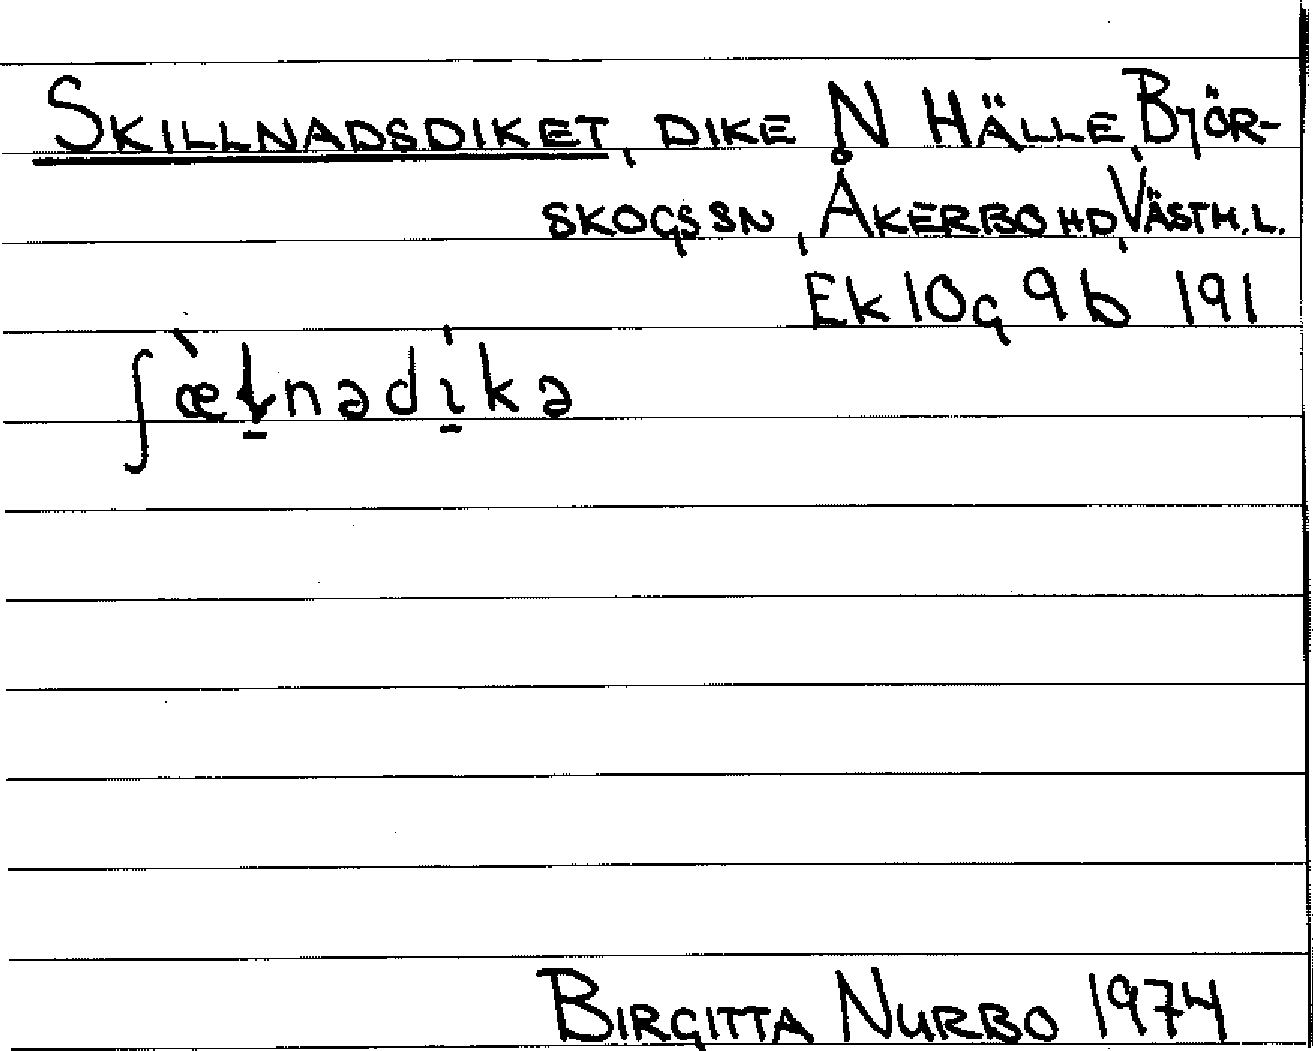 SKILLNADSDIKET, DIKE N HÄLLE, BJÖR-
SKOGS SN, ÅKERBO HD, VÄSTM.L.
Ek 10g 9b 191
ʃæ̀ɬnadi̇̀kə
BIRGITTA NURBO 1974